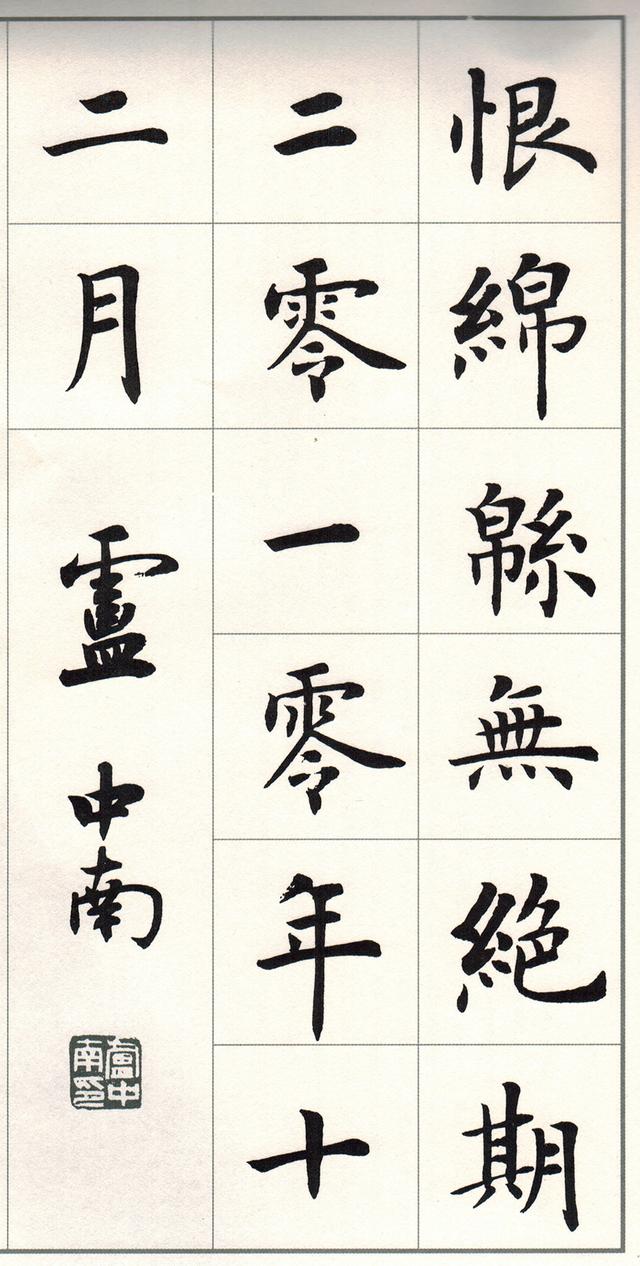 恨綿緜無絕期
二零一零年十
二月盧中南
盧中南印